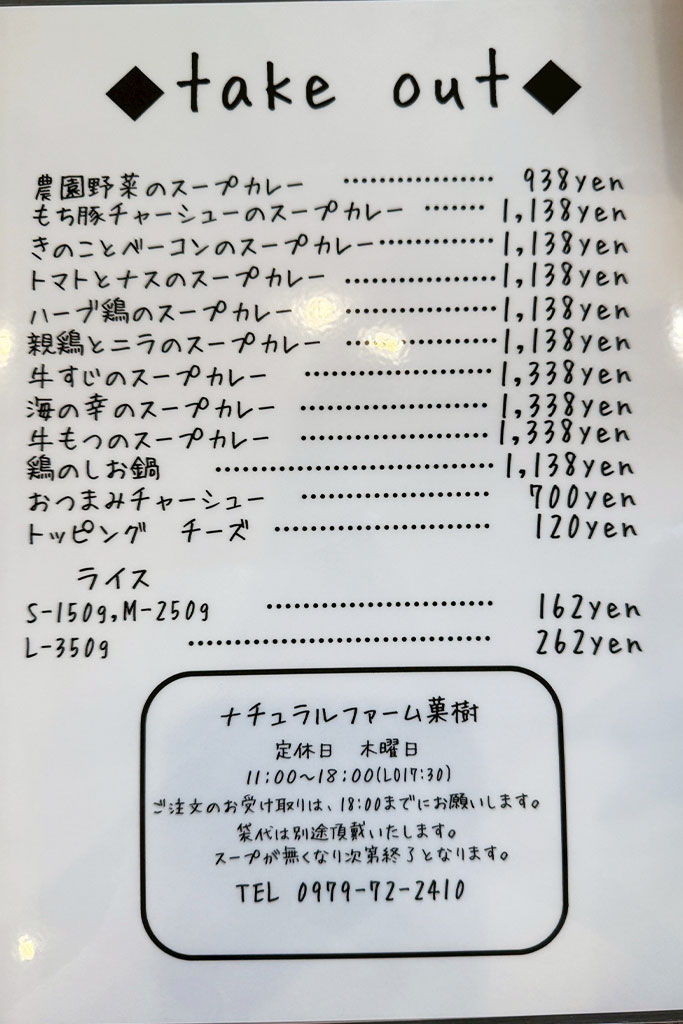 ◆take out◆
農園野菜のスープカレー ……………… 938yen
もち豚チャーシューのスープカレー ……. 1,138yen
きのことベーコンのスープカレー ………… 1,138yen
トマトとナスのスープカレー ……………… 1,138yen
ハーブ鶏のスープカレー ……………… 1,138yen
親鶏とニラのスープカレー ……………… 1,138yen
牛すじのスープカレー ……………… 1,338yen
海の幸のスープカレー ……………… 1,338yen
牛もつのスープカレー ……………… 1,338yen
鶏のしお鍋 ……………………… 1,138yen
おつまみチャーシュー ……………… 700yen
トッピング チーズ ……………… 120yen
ライス
S-150g,M-250g ……………… 162yen
L-350g ……………………… 262yen
ナチュラルファーム菓樹
定休日 木曜日
11:00~18:00(LO17:30)
ご注文のお受け取りは、18:00までにお願いします。
袋代は別途頂戴いたします。
スープが無くなり次第終了となります。
TEL 0979-72-2410